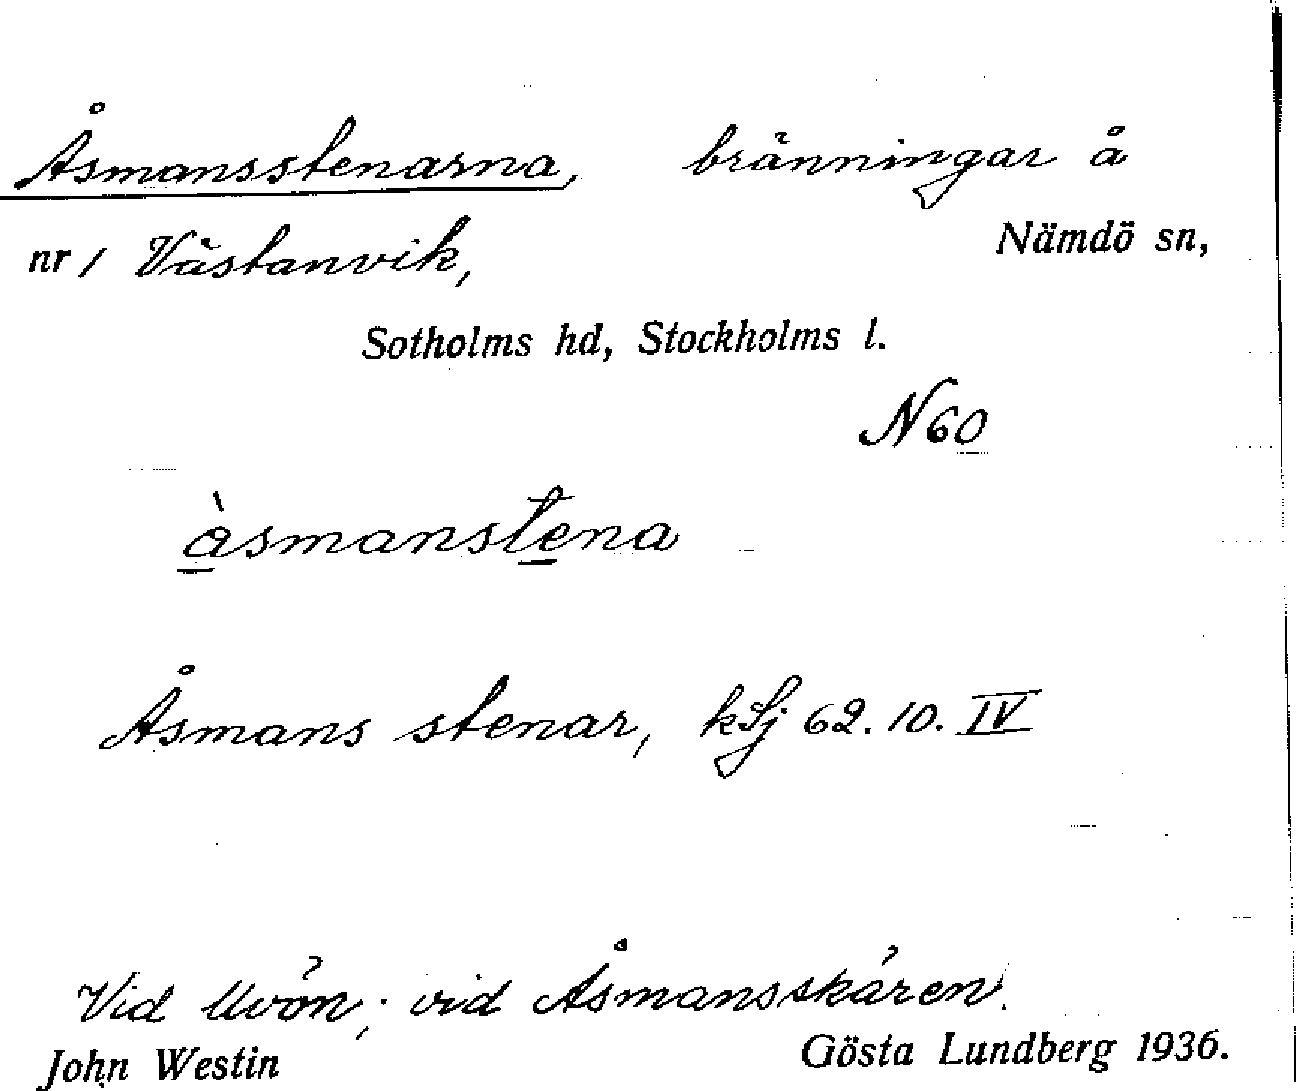 Åsmansstenarna, bränningar å
nr 1 Västanvik, Nämdö sn,
Sotholms hd, Stockholms l.
N 60
àsmanstena
Åsmans stenar, kSj 62. 10. IV
Vid Uvön; vid Åsmansskären.
John Westin Gösta Lundberg 1936.